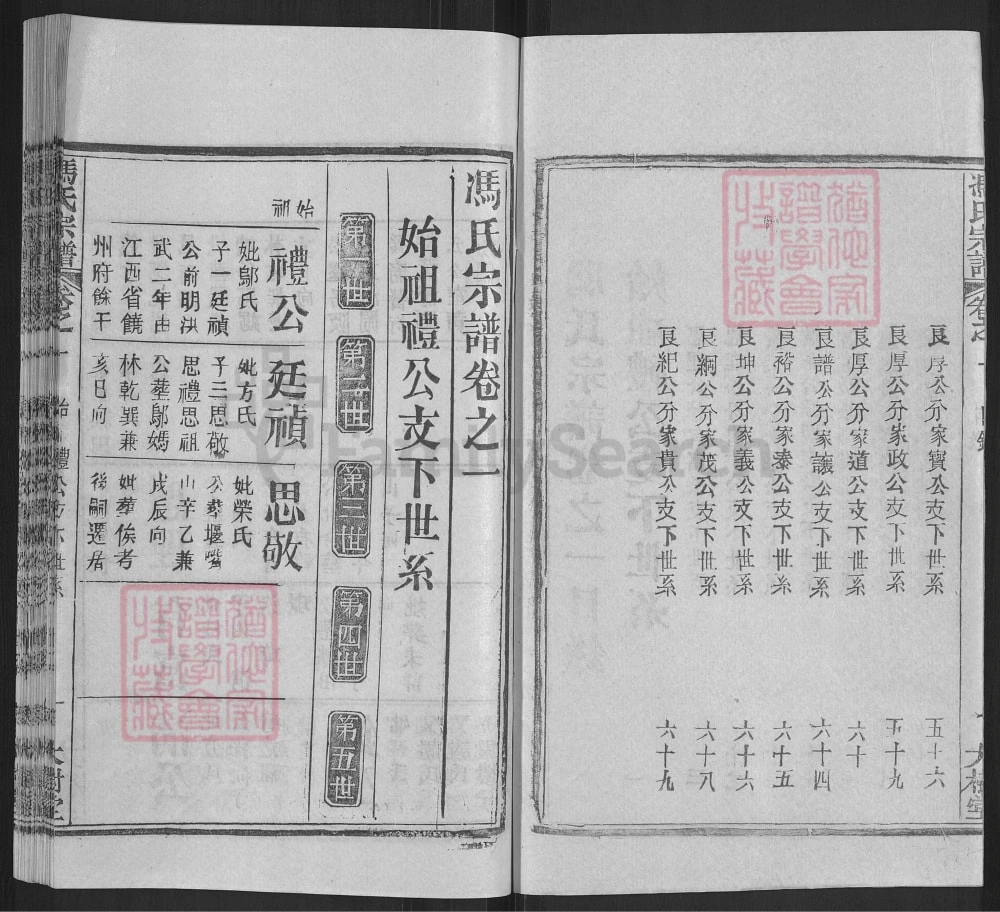 馮氏宗譜
大樹堂
良厚公分家寶公支下世系 五十六
良厚公分家政公支下世系 五十九
良厚公分家道公支下世系 六十
良譜公分家議公支下世系 六十四
良裕公分家泰公支下世系 六十五
良坤公分家義公支下世系 六十六
良綱公分家茂公支下世系 六十八
良紀公分家貴公支下世系 六十九
猶他家
譜學會
收藏
馮氏宗譜卷之一
始祖禮公支下世系
第一世
第二世
第三世
第四世
第五世
始祖
禮公
妣鄔氏
子一廷禎
公前明洪
武二年由
江西省饒
州府餘干
廷禎
妣方氏
子三思敬
思禮思祖
公塟鄔媽
林乾巽兼
亥巳向
思敬
妣榮氏
公塟堰嘴
山辛乙兼
戌辰向
妣塟俟考
後嗣遷居
猶他家
譜學會
收藏
馮氏宗譜 卷之一 始祖禮公支下世系 一 大樹堂
FamilySearch